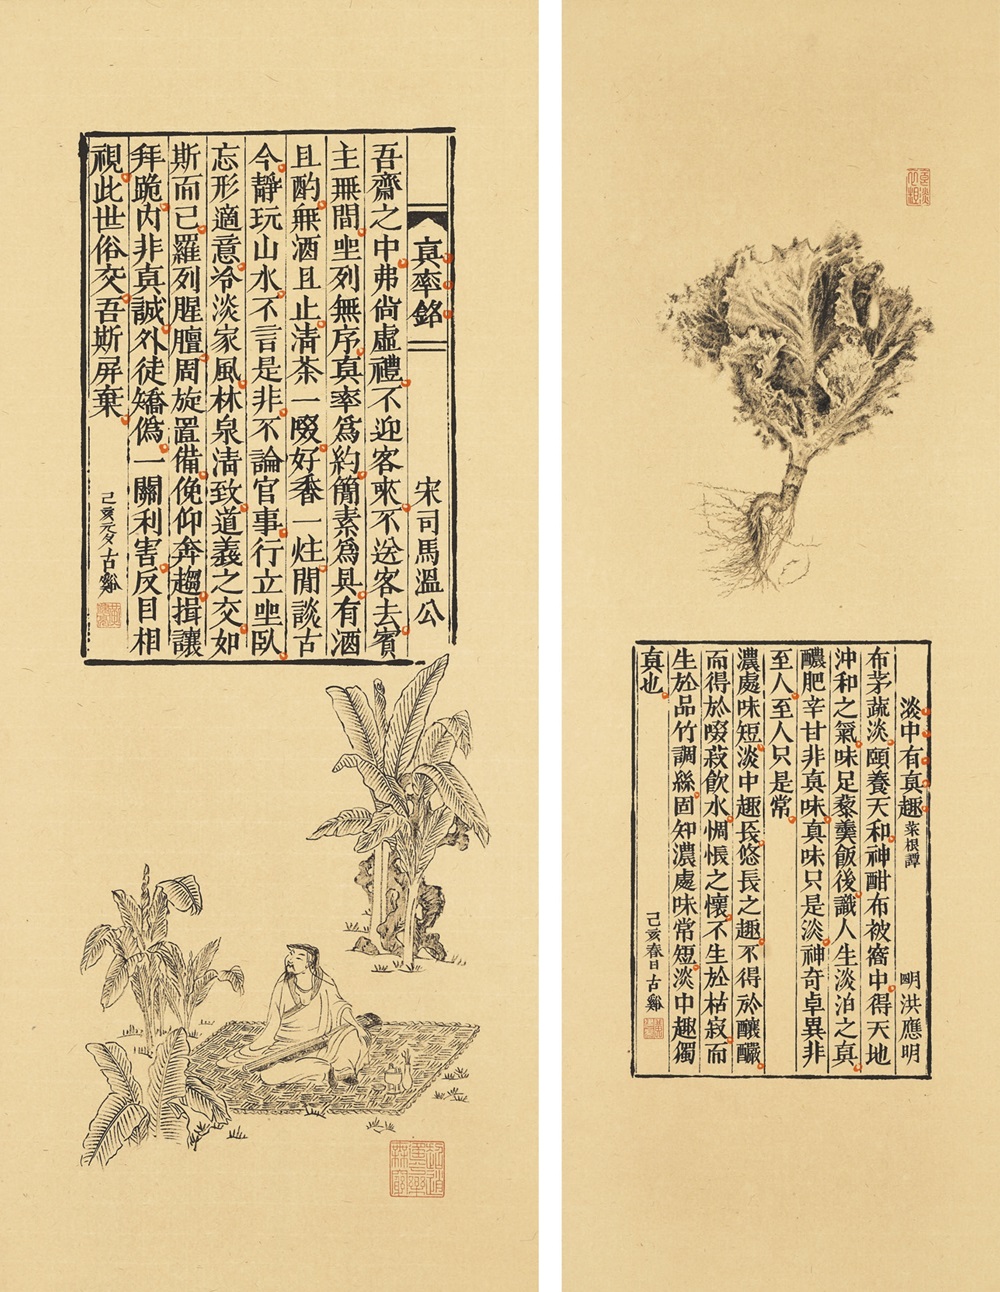 真率銘 宋司馬溫公
吾齋之中弗尙虛禮不迎客來不送客去賓
主無間坐列無序真率爲約簡素爲具有酒
且酌無酒且止清茶一啜好香一炷閒談古
今靜玩山水不言是非不論官事行立坐臥
忘形適意冷淡家風林泉清致道義之交如
斯而已羅列腥膻周旋置備俛仰奔趨揖讓
拜跪內非真誠外徒矯偽一關利害反目相
視此世俗交吾斯屏棄
己亥元夕古谿
淡中有真趣 菜根譚 明洪應明
布茅蔬淡頤養天和神酣布被窩中得天地
沖和之氣味足藜羹飯後識人生淡泊之真
醲肥辛甘非真味真味只是淡神奇卓異非
至人至人只是常
濃處味短淡中趣長悠長之趣不得於醲釅
而得於啜菽飲水惆悵之懷不生於枯寂而
生於品竹調絲固知濃處味常短淡中趣獨
真也
己亥春日古谿